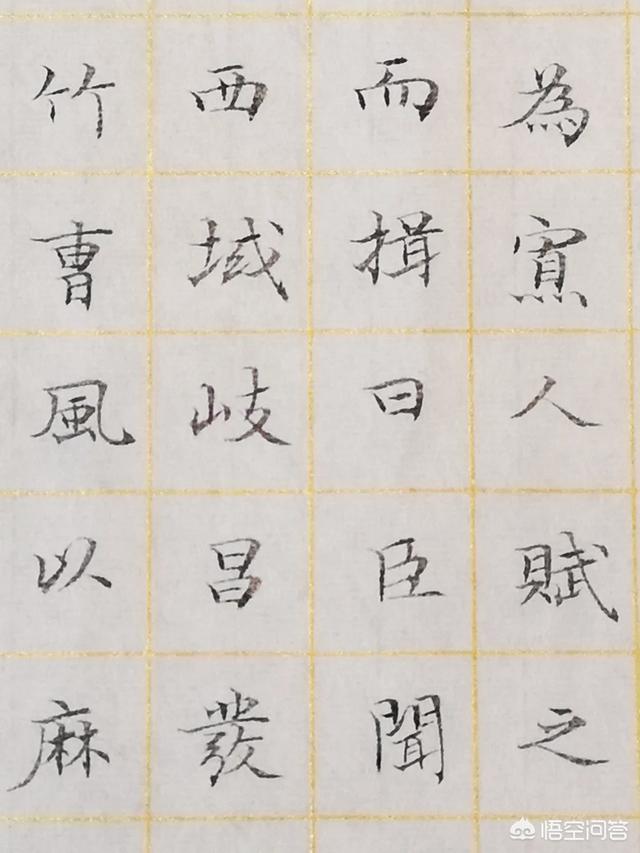 為寡人賦之
而揖曰臣聞
西域岐昌發
竹曹風以麻
悟空问答